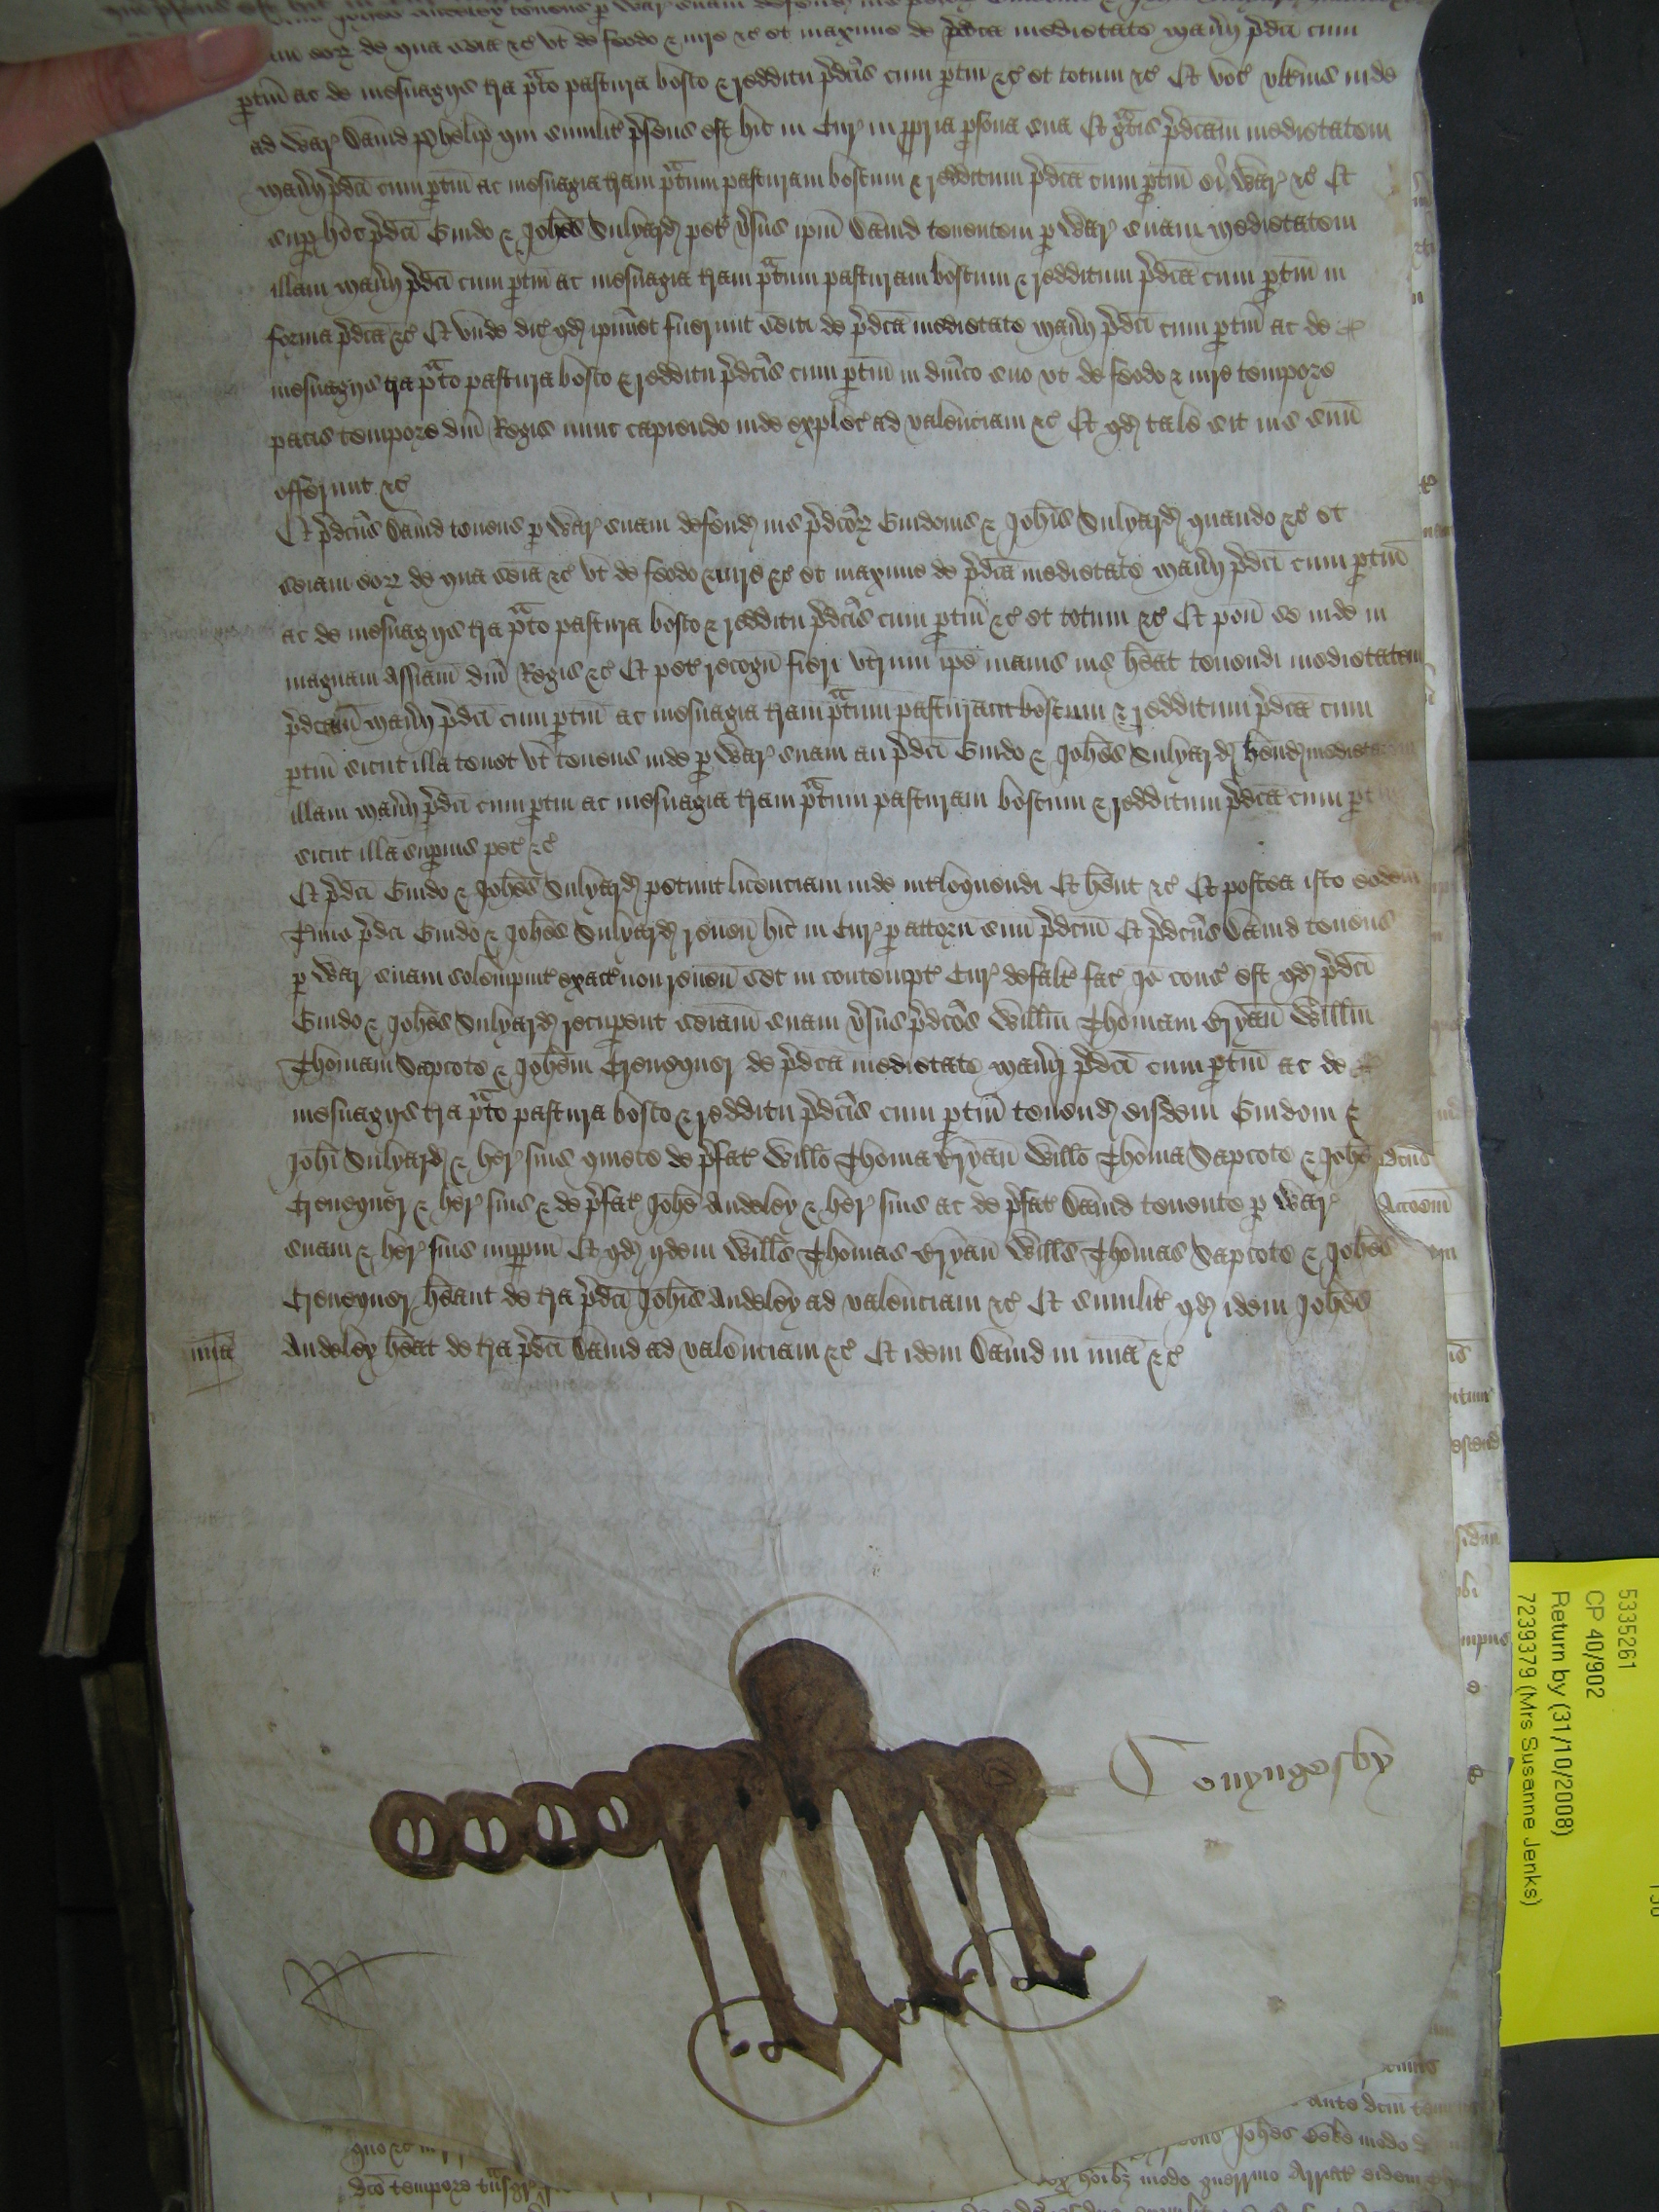 seiam eorꝝ de qua seia ⁊c̃ vt de feodo ⁊ iure ⁊c̃ et maxime de p̃dc̃a medietate man̄ij p̃dc̃i cum
ꝑtin̄ ac de mesuagijs t̃ra p̃ato pastura bosco ⁊ redditu p̃dc̃is cum ꝑtin̄ ⁊c̃ et totum ⁊c̃ Et voc̃ vlt̃ius inde
ad War̃ Dauid Phelip qui similit̃ p̃sens est hic in Cur̃ in ꝓpria ꝑsona sua Et gr̃atis p̃dc̃am medietatem
man̄ij p̃dc̃i cum ꝑtin̄ ac mesuagia t̃ram p̃atum pasturam boscum ⁊ redditum p̃dc̃a cum ꝑtin̄ ei War̃ ⁊c̃ Et
suꝑ hoc p̃dc̃i Guido ⁊ Joh̃es Sulyard pet̃ ṽsus ip̃m Dauid tenentem ꝑ War̃ suam medietatem
illam man̄ij p̃dc̃i cum ꝑtin̄ ac mesuagia t̃ram p̃atum pasturam boscum ⁊ redditum p̃dc̃a cum ꝑtin̄ in
forma p̃dc̃a ⁊c̃ Et vnde dic̃ qd̃ ip̃imet fuerunt sei̅ti de p̃dc̃a medietate man̄ij p̃dc̃i cum ꝑtin̄ ac de
mesuagijs t̃ra p̃ato pastura bosco ⁊ redditu p̃dc̃is cum ꝑtin̄ in dn̄ico suo vt de feodo ⁊ iure tempore
pacis tempore dn̄i Regis nunc capiendo inde explet̃ ad valenciam ⁊c̃ Et qd̃ tale sit ius suū
offerunt ⁊c̃
Et p̃dc̃us Dauid tenens ꝑ War̃ suam defend̃ ius p̃dc̃orꝝ Guidonis ⁊ Joh̃is Sulyard quando ⁊c̃ et
seiam eorꝝ de qua seia ⁊c̃ vt de feodo ⁊ iure ⁊c̃ et maxime de p̃dc̃a medietate man̄ij p̃dc̃i cum ꝑtin̄
ac de mesuagijs t̃ra p̃ato pastura bosco ⁊ redditu p̃dc̃is cum ꝑtin̄ ⁊c̃ et totum ⁊c̃ Et pon̄ se inde in
magnam Assiam dn̄i Regis ⁊c̃ Et pet̃ recogn̄ fieri vtrum ip̃e maius ius h̃eat tenendi medietatem
p̃dc̃am man̄ij p̃dc̃i cum ꝑtin̄ ac mesuagia t̃ram p̃atum pasturam boscum ⁊ redditum p̃dc̃a cum
ꝑtin̄ sicut illa tenet vt tenens inde ꝑ War̃ suam an p̃dc̃i Guido ⁊ Joh̃es Sulyard h̃end̃ medietatem
illam man̄ij p̃dc̃i cum ꝑtin̄ ac mesuagia t̃ram p̃atum pasturam boscum ⁊ redditum p̃dc̃a cum ꝑtin̄
sicut illa suꝑius pet̃ ⁊c̃
Et p̃dc̃i Guido ⁊ Joh̃es Sulyard petunt licenciam inde int̃loquendi Et h̃ent ⁊c̃ Et postea isto eodem
T̃mino p̃dc̃i Guido ⁊ Joh̃es Sulyard reuen̄ hic in Cur̃ ꝑ attorn̄ suū p̃dc̃m̄ Et p̃dc̃us Dauid tenens
ꝑ War̃ suam solempnit̃ exact̃ non reuen̄ set in contempt̃ Cur̃ defalt̃ fac̃ Io̅ cons̃ est qd̃ p̃dc̃i
Guido ⁊ Joh̃es Sulyard recuꝑent seiam̄ suam ṽsus p̃dc̃os Will̃m Thomam Bryan̄ Will̃m
Thomam Sapcote ⁊ Joh̃em Treneguer de p̃dc̃a medietate man̄ij p̃dc̃i cum ꝑtin̄ ac de
mesuagijs t̃ra p̃ato pastura bosco ⁊ redditu p̃dc̃is cum ꝑtin̄ tenend̃ eisdem Guidoni ⁊
Joh̃i Sulyard ⁊ her̃ suis quiete de p̃fat̃ Will̃o Thoma Bryan̄ Will̃o Thoma Sapcote ⁊ Joh̃e
Treneguer ⁊ her̃ suis ⁊ de p̃fat̃ Joh̃e Audeley ⁊ her̃ suis ac de p̃fat̃ Dauid tenente ꝑ War̃
suam ⁊ her̃ suis imꝑpm̄ Et qd̃ ijdem Will̃s Thomas Bryan̄ Will̃s Thomas Sapcote ⁊ Joh̃es
Treneguer h̃eant de t̃ra p̃dc̃i Joh̃is Audeley ad valenciam ⁊c̃ Et similit̃ qd̃ idem Joh̃es
mīa Audeley h̃eat de t̃ra p̃dc̃i Dauid ad valenciam ⁊c̃ Et idem Dauid in mīa ⁊c̃
Conyngesby
5335261
CP 40/902
Return by (31/10/2008)
7239379 (Mrs Susanne Jenks)